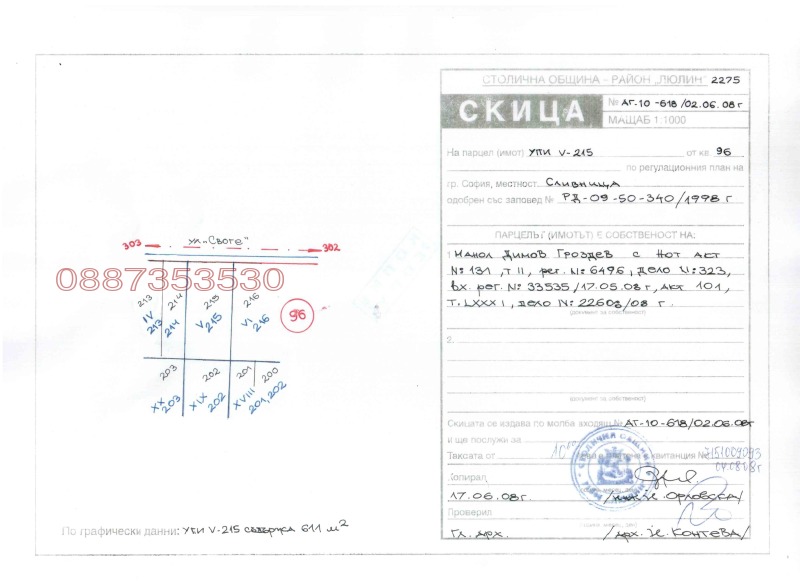 СТОЛИЧНА ОБЩИНА - РАЙОН "ЛЮЛИН" 2275
СКИЦА
№ АГ-10-618/02.06.08г
МАЩАБ 1:1000
На парцел (имот) УПИ V-215 от кв. 96
по регулационния план на
гр. София, местност. Сливница
одобрен със заповед № РД-09-50-340/1998 г
ПАРЦЕЛЪТ (ИМОТЪТ) Е СОБСТВЕНОСТ НА:
1 Манол Димов Гроздев с Нот акт
№ 131, т II, рег. № 6196, дело №: 323,
вх. рег. №: 33535/17.05.08г, акт 101,
т. LXXXI, дело №: 22603/08 г.
(документ за собственост)
2.
(документ за собственост)
Скицата се издава по молба входящ № АГ-10-618/02.06.08г
и ще послужи за
Таксата от 10 квитанция № 7151009093
04.08.08г
Копирал
17.06.08г. /инж. Н. Орловска/
Проверил
Гл. арх. /арх. Н. Контева/
ул. "Своге"
303 302
0887353530
213 214 215 216
IV 213 214 V 215 VI 216
96
203 202 201 200
XX 203 XIX 202 XVIII 201,202
По графически данни: УПИ V-215 съдържа 611 м²